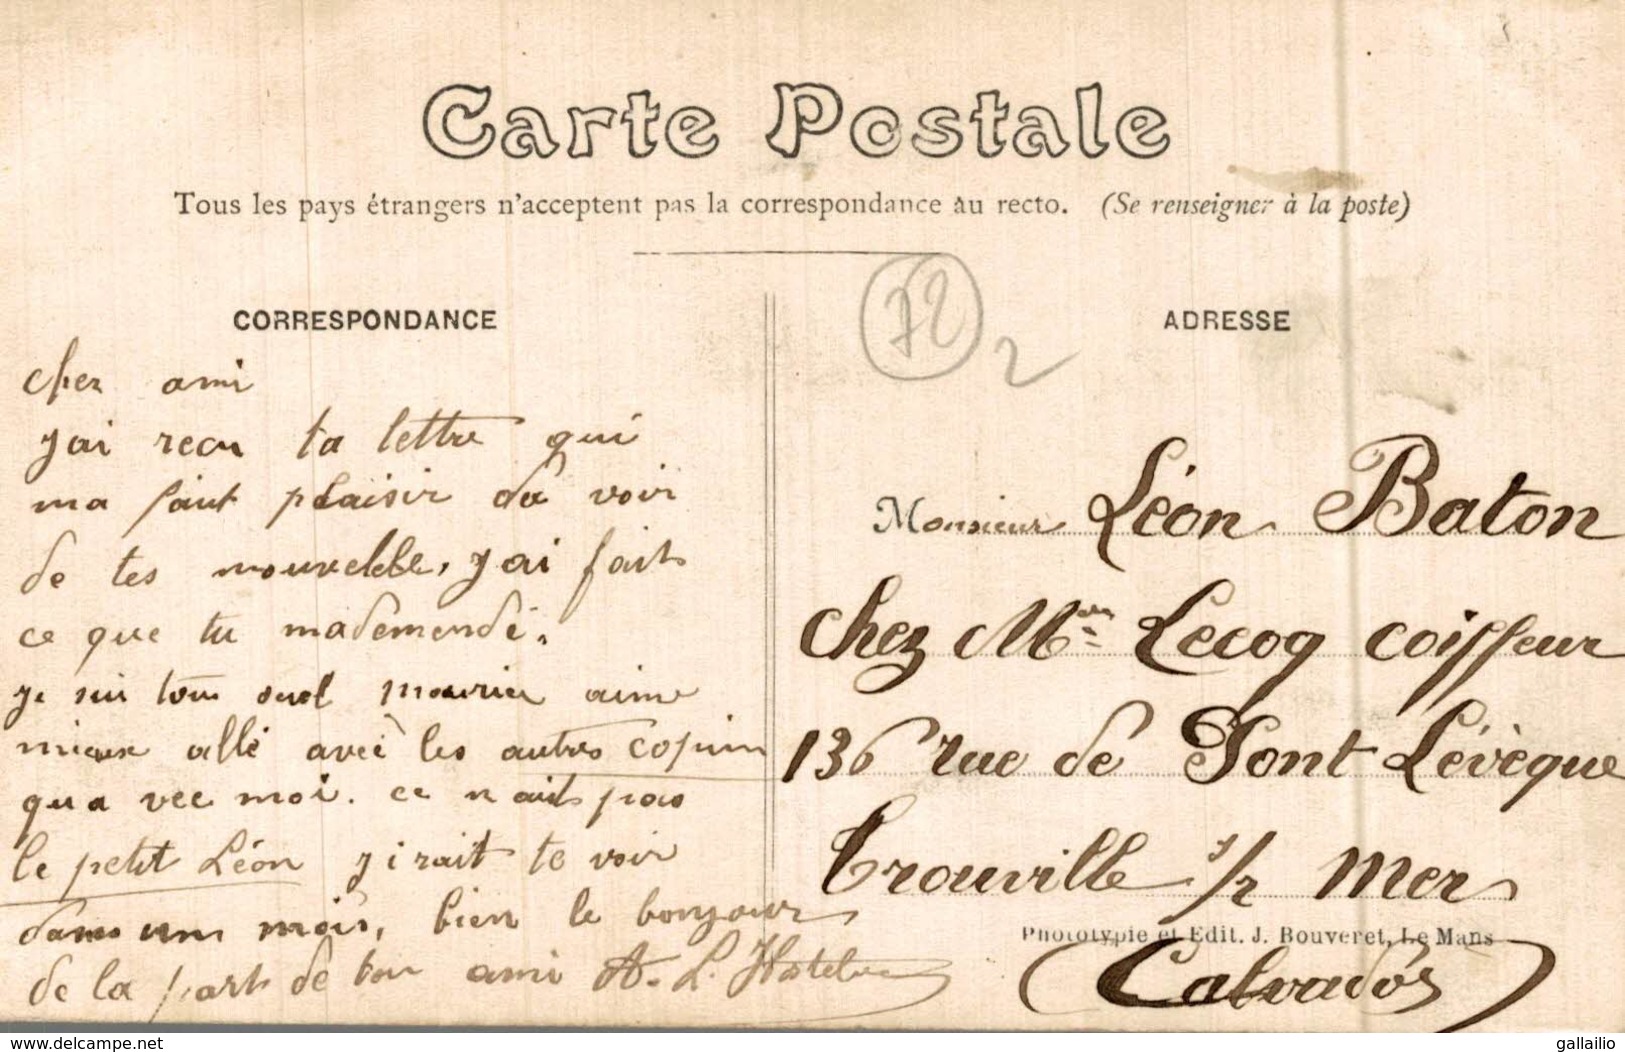 Carte Postale
Tous les pays étrangers n'acceptent pas la correspondance au recto. (Se renseigner à la poste)
72
2
CORRESPONDANCE
cher ami
j'ai recu ta lettre qui
ma fait plaisir da voir
de tes nouvelle, j'ai fait
ce que tu mademendé.
je sui tou seul maurice aime
mieux allé avec les autres copin
qu a vec moi. ce n ait pas
le petit Léon j irait te voir
dans un mois, bien le bonjour
de la part de ton ami A. L.
ADRESSE
Monsieur Léon Baton
chez Mr Lecoq coiffeur
136 rue de Pont Lévèque
Trouville s/r mer
Phototypie et Edit. J. Bouveret, Le Mans
(Calvados)
www.delcampe.net
gallailio